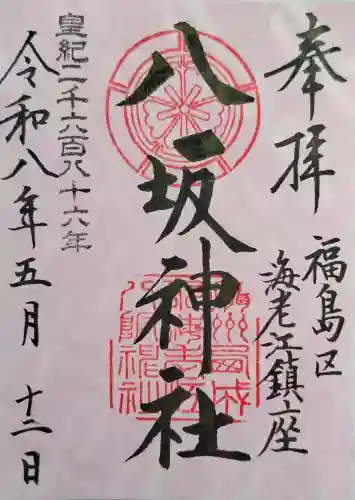 奉拝
福島区
海老江鎮座
八坂神社
皇紀二千六百八十六年
令和八年五月十二日